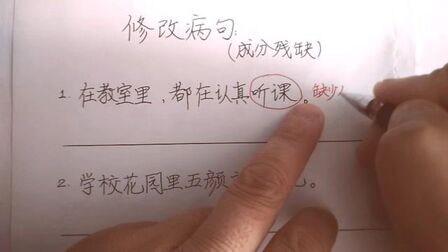 修改病句:
(成分残缺)
1. 在教室里，都在认真听课。缺少
2. 学校花园里五颜